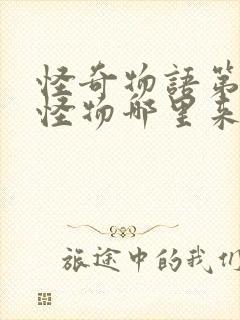 怪奇物語第
怪物哪里来
旅途中的我们